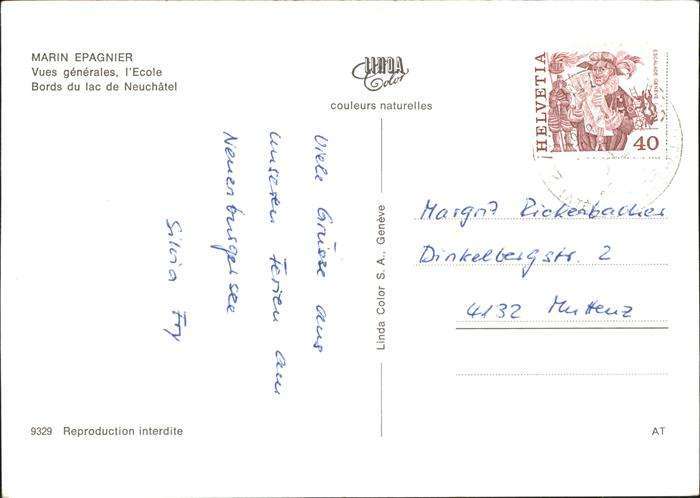 MARIN EPAGNIER
Vues générales, l'Ecole
Bords du lac de Neuchâtel
LINDA
Color
couleurs naturelles
HELVETIA
ESCALADE GENÈVE
40
Viele Grüsse aus
unseren Ferien am
Neuenburgersee
Silvia Fry
Linda Color S. A., Genève
Margrit Rickenbacher
Dinkelbergstr. 2
4132 Muttenz
9329 Reproduction interdite
AT